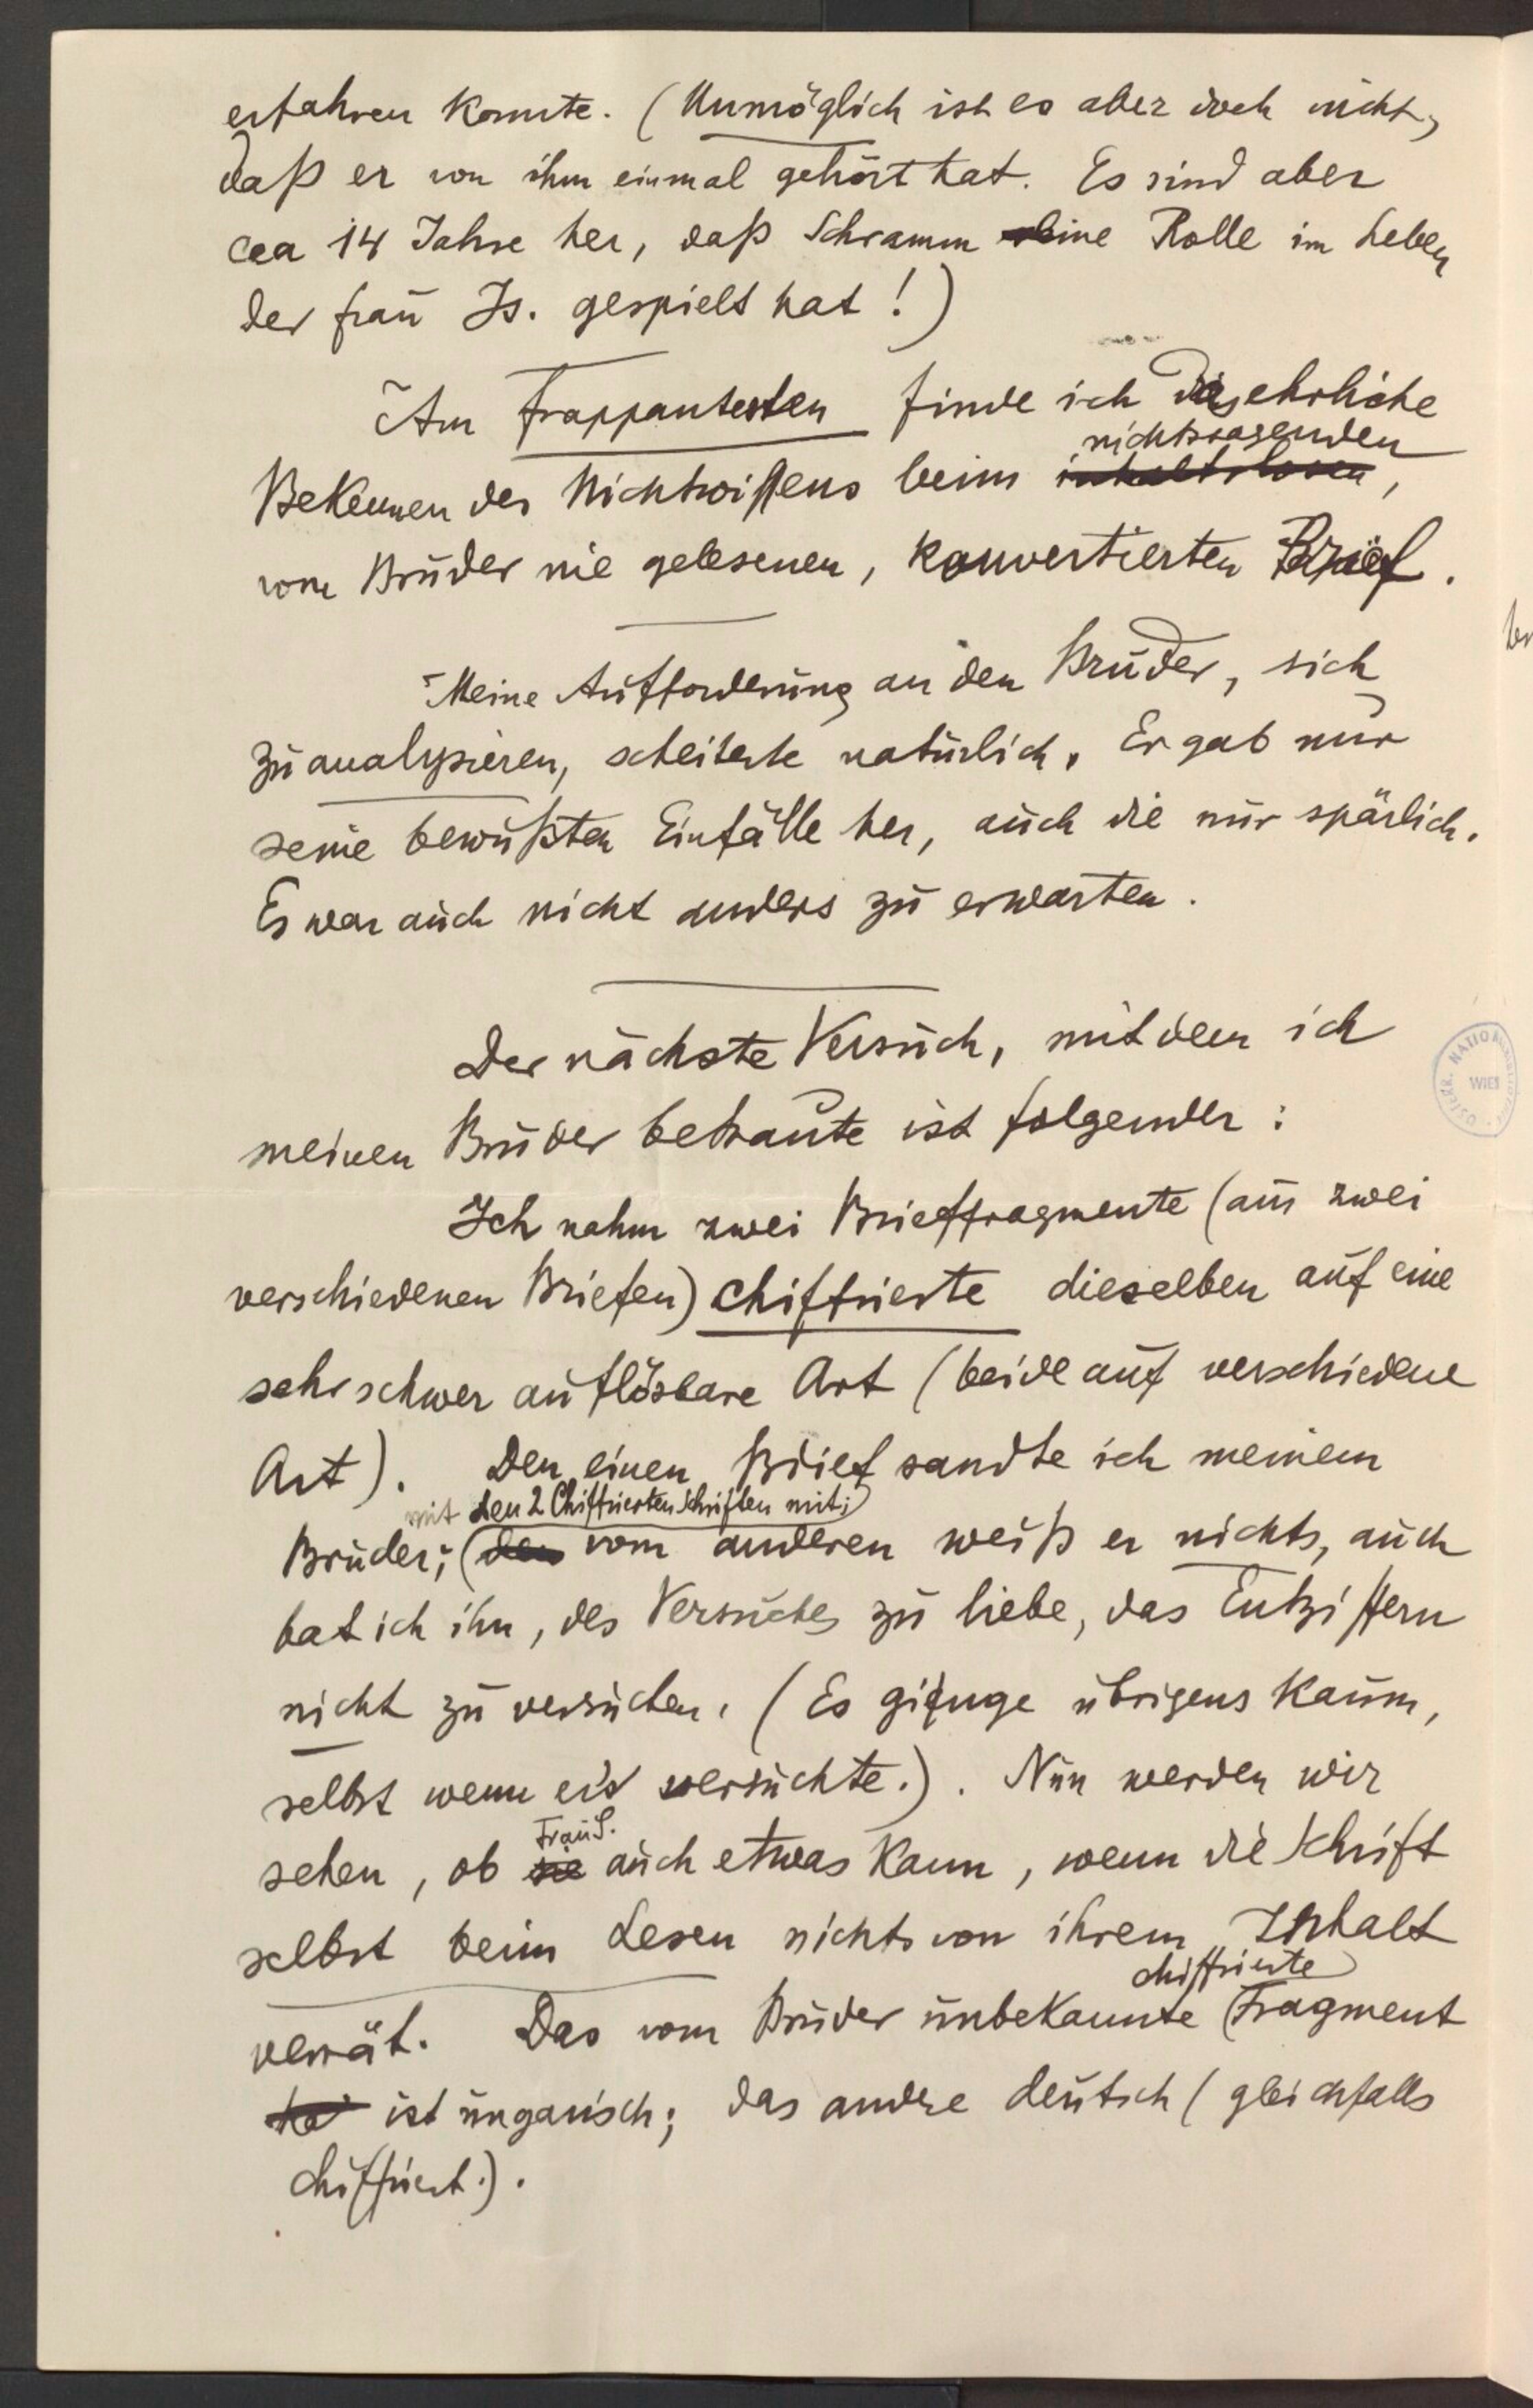 erfahren konnte. (Unmöglich ist es aber doch nicht,
daß er von ihm einmal gehört hat. Es sind aber
cca 14 Jahre her, daß Schramm eine Rolle im Leben
der Frau Is. gespielt hat!)
Am frappantesten finde ich das ehrliche
nichtssagenden
Bekennen des Nichtwissens beim inhaltslosen,
vom Bruder nie gelesenen, kouvertierten Brief.
Meine Aufforderung an den Bruder, sich
zu analysieren, scheiterte natürlich. Er gab nur
seine bewußten Einfälle her, auch die nur spärlich.
Es war auch nicht anders zu erwarten.
Der nächste Versuch, mit dem ich
meinen Bruder betraute ist folgender:
Ich nahm zwei Brieffragmente (aus zwei
verschiedenen Briefen) chiffrierte dieselben auf eine
sehr schwer auflösbare Art (beide auf verschiedene
Art). Den einen Brief sandte ich meinem
mit den 2 Chiffrierten Schriften mit;
Bruder; (den vom anderen weiß er nichts, auch
bat ich ihn, des Versuches zu liebe, das Entziffern
nicht zu versuchen. (Es ginge übrigens kaum,
selbst wenn er's versuchte.). Nun werden wir
Frau S.
sehen, ob sie auch etwas kann, wenn die Schrift
selbst beim Lesen nichts von ihrem Inhalt
chiffrierte
verrät. Das vom Bruder unbekannte Fragment
ist ungarisch; das andere deutsch (gleichfalls
chiffriert.).
ÖSTERR. NATIONALBIBLIOTHEK WIEN